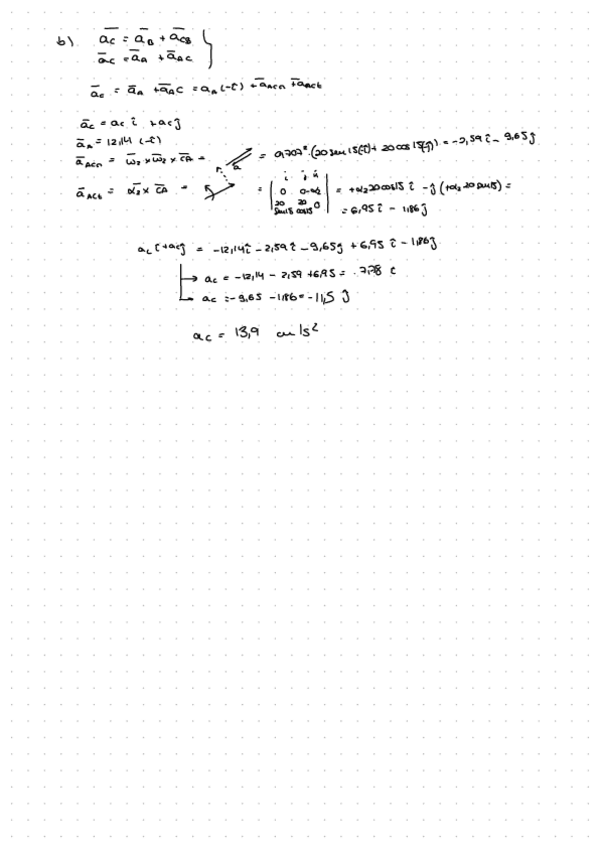 b) a̅c = a̅B + a̅CB
a̅c = a̅A + a̅AC
a̅c = a̅A + a̅AC = aA (-i) + a̅ACn + a̅ACt
a̅c = ac i + ac j
a̅A = 12,14 (-i)
a̅ACn = ω̅2 x ω̅2 x C̅A = = 0,707² · (20 sen 15(i) + 20 cos 15(j)) = -2,59 i - 9,65 j
a̅ACt = α̅2 x C̅A = = | i j k 0 0 -α2 20 sen15 20 cos15 0 | = +α2 20 cos15 i - j (+α2 20 sen15) =
= 6,95 i - 1,86 j
ac i + ac j = -12,14 i - 2,59 i - 9,65 j + 6,95 i - 1,86 j
ac = -12,14 - 2,59 + 6,95 = 7,78 i
ac = -9,65 - 1,86 = -11,5 j
ac = 13,9 cm/s²